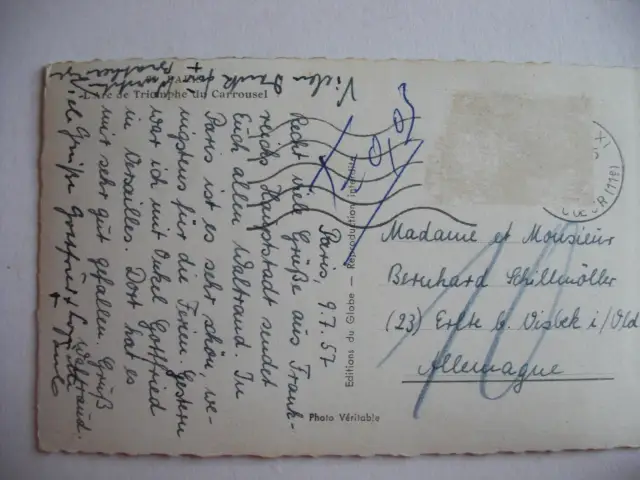 L'Arc de Triomphe du Carrousel
Paris, 9.7.57
Recht viele Grüße aus Frank-
reichs Hauptstadt sendet
Euch allen Waltraud. In
Paris ist es sehr schön, we-
nigstens für die Ferien. Gestern
war ich mit Onkel Gottfried
in Versailles. Dort hat es
mir sehr gut gefallen. Gruß
Waltraud.
Viele Grüße Gottfried
Vielen Dank
Editions du Globe — Reproduction interdite
Photo Véritable
Madame et Monsieur
Bernhard Schillmöller
(23) Erlte b. Visbek i/Old
Allemagne
10